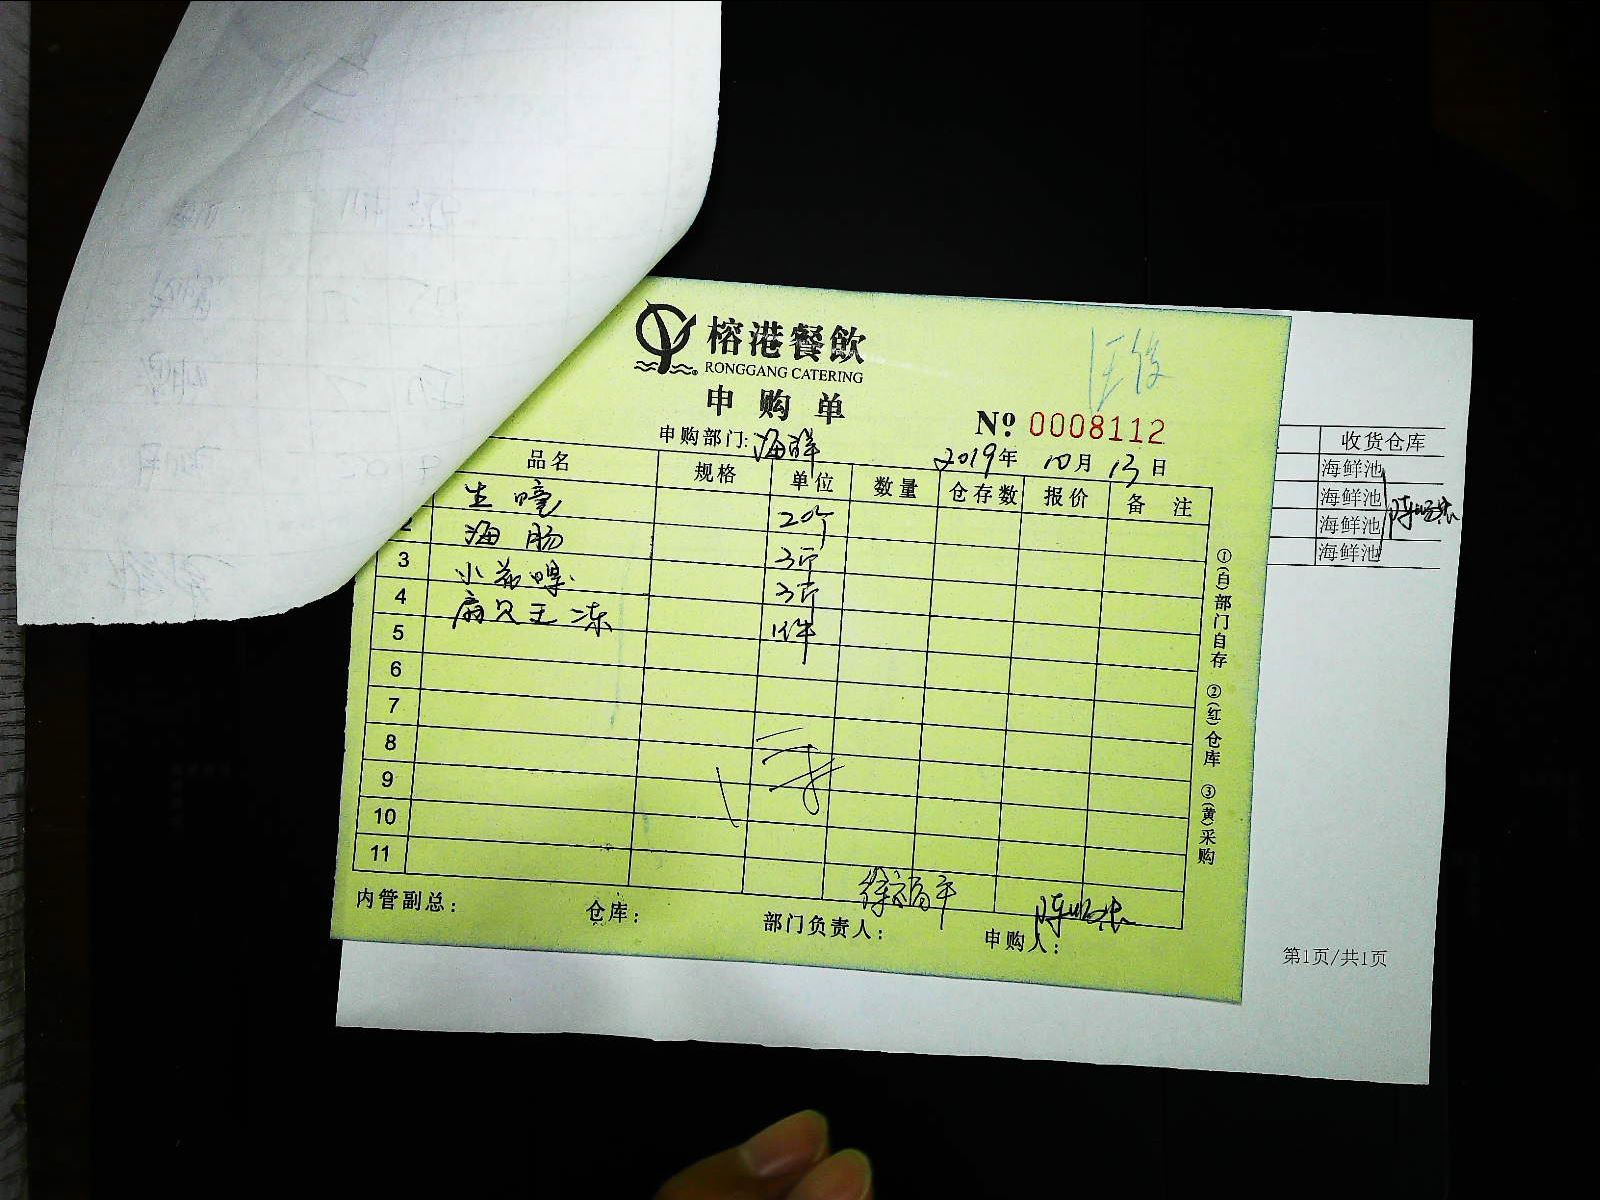 榕港餐飲
RONGGANG CATERING
申购单
№ 0008112
申购部门: 海鲜
2019年 10月 13日
品名 规格 单位 数量 仓存数 报价 备注
生蠔 20斤
2 海肠 3斤
3 小花螺 3斤
4 扇贝王冻 1件
5
6
7
8
9
10
11
内管副总: 仓库: 部门负责人: 徐福平 申购人:
①(白)部门自存 ②(红)仓库 ③(黄)采购
收货仓库
海鲜池
海鲜池
海鲜池
海鲜池
第1页/共1页